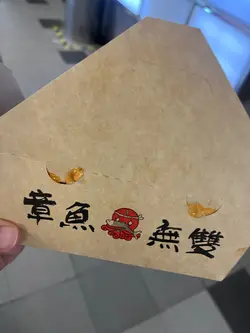 章魚 無雙